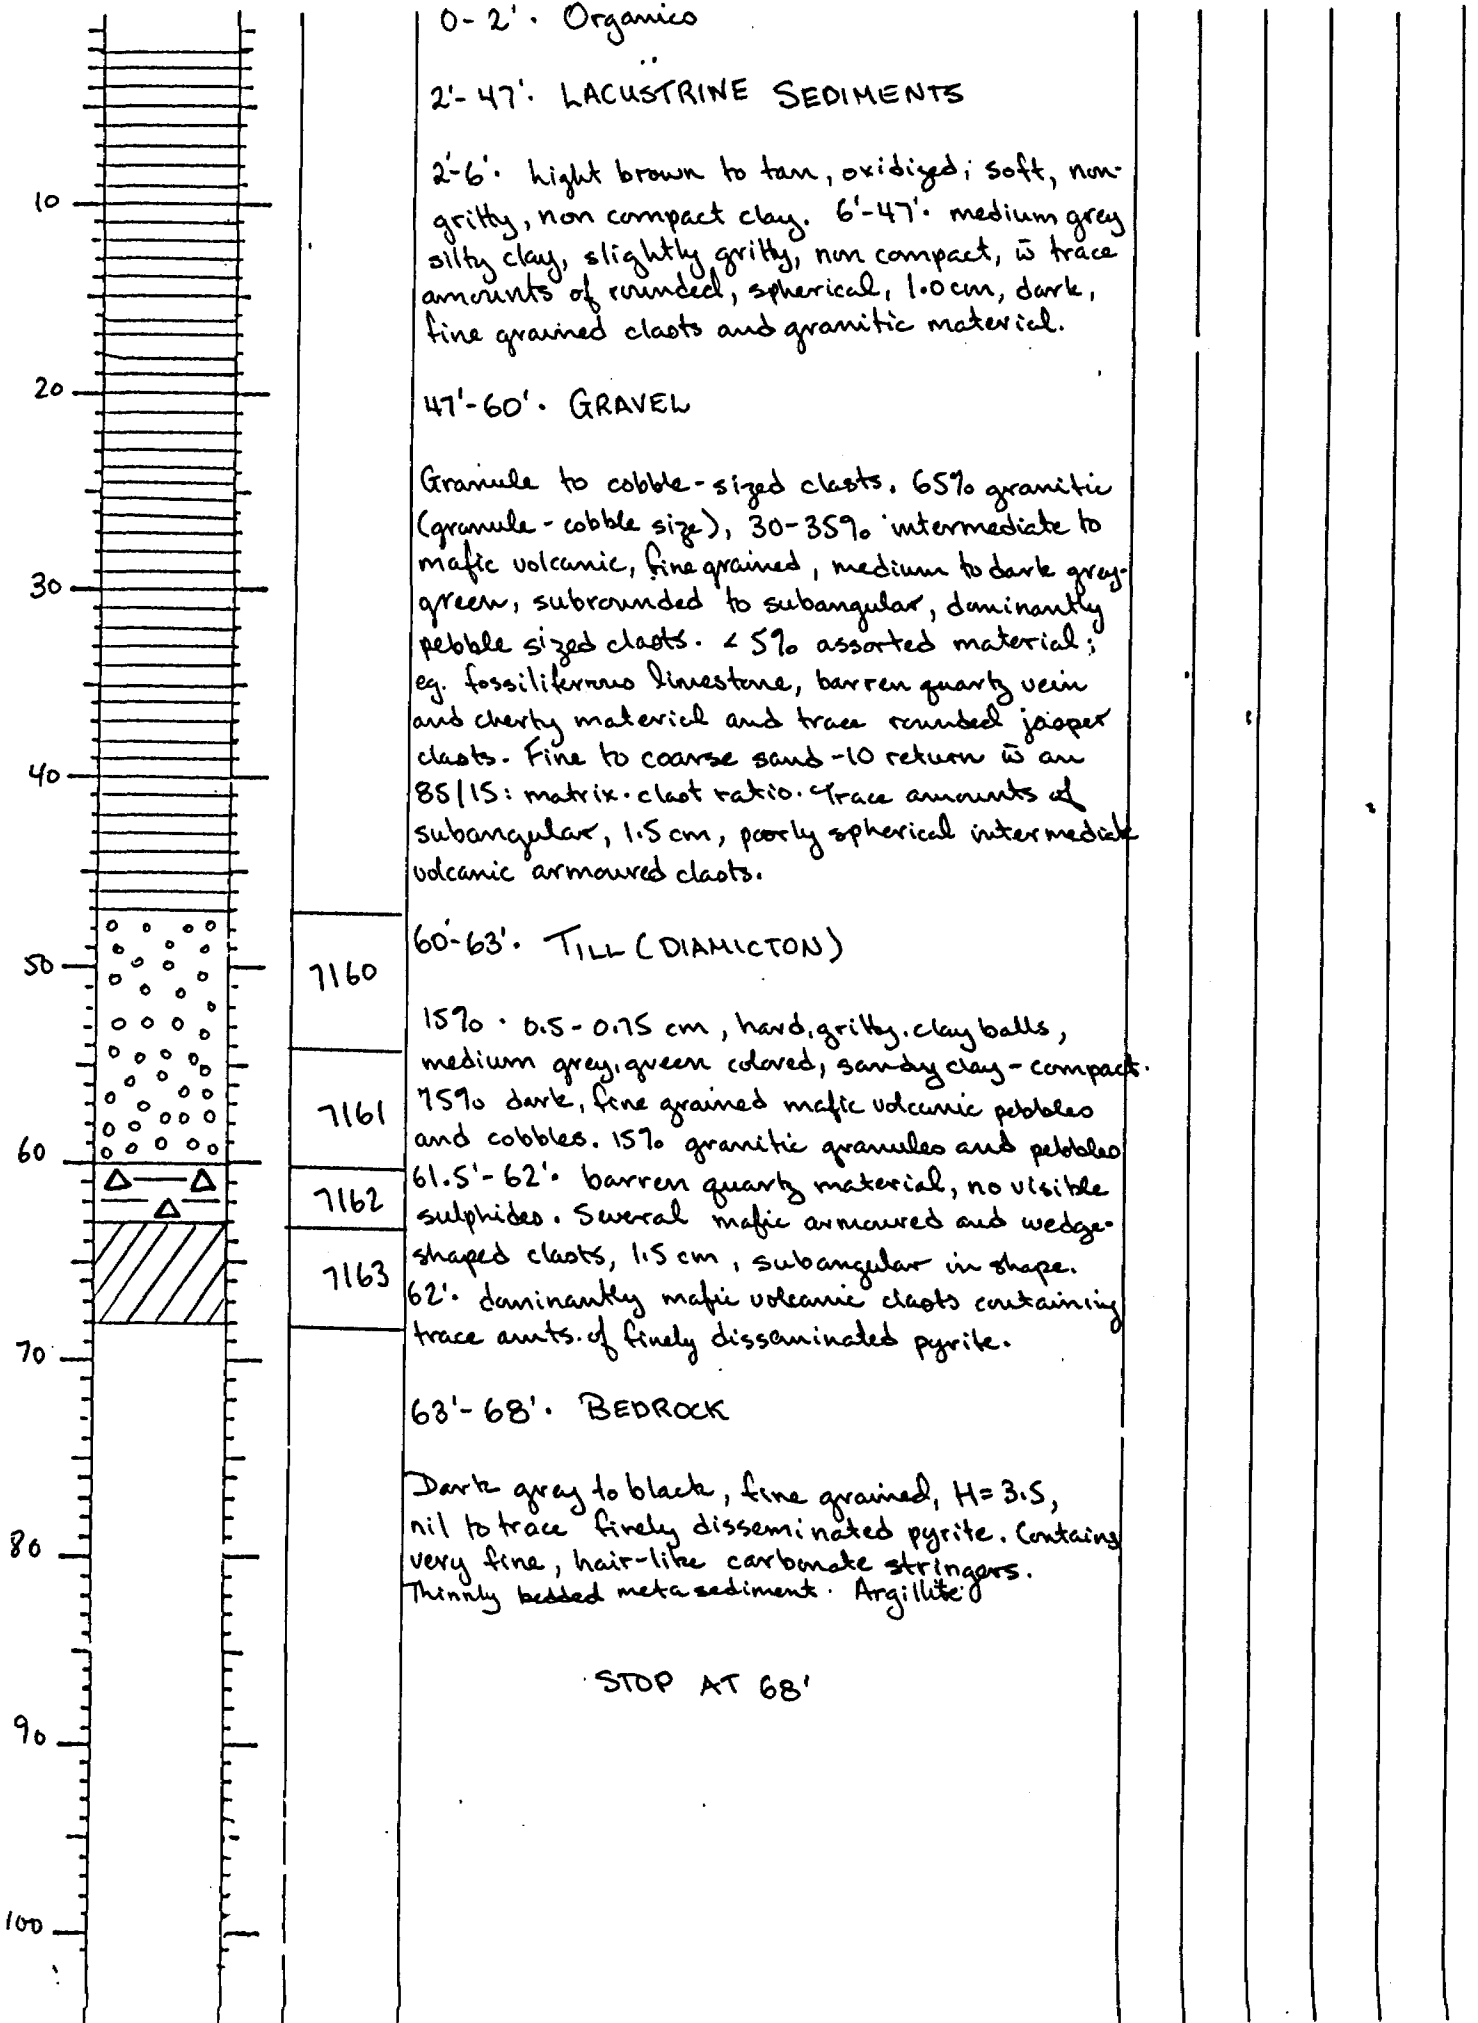 0-2'. Organics
2'-47'. LACUSTRINE SEDIMENTS
2'-6'. Light brown to tan, oxidized; soft, non-
gritty, non compact clay. 6'-47'. medium grey
silty clay, slightly gritty, non compact, w̄ trace
amounts of rounded, spherical, 1.0 cm, dark,
fine grained clasts and granitic material.
47'-60'. GRAVEL
Granule to cobble-sized clasts. 65% granitic
(granule-cobble size), 30-35% intermediate to
mafic volcanic, fine grained, medium to dark grey-
green, subrounded to subangular, dominantly
pebble sized clasts. < 5% assorted material;
eg. fossiliferous limestone, barren quartz vein
and cherty material and trace rounded jasper
clasts. Fine to coarse sand -10 return w̄ an
85/15: matrix.clast ratio. Trace amounts of
subangular, 1.5 cm, poorly spherical intermediate
volcanic armoured clasts.
60'-63'. TILL (DIAMICTON)
15% . 0.5-0.75 cm, hard, gritty. clay balls,
medium grey, green colored, sandy clay-compact.
75% dark, fine grained mafic volcanic pebbles
and cobbles. 15% granitic granules and pebbles
61.5'-62'. barren quartz material, no visible
sulphides. Several mafic armoured and wedge-
shaped clasts, 1.5 cm, subangular in shape.
62'. dominantly mafic volcanic clasts containing
trace amts. of finely dissaminated pyrite.
63'-68'. BEDROCK
Dark grey to black, fine grained, H=3.5,
nil to trace finely disseminated pyrite. Contains
very fine, hair-like carbonate stringers.
Thinnly bedded meta sediment. Argillite.
STOP AT 68'
10
20
30
40
50
60
70
80
90
100
7160
7161
7162
7163